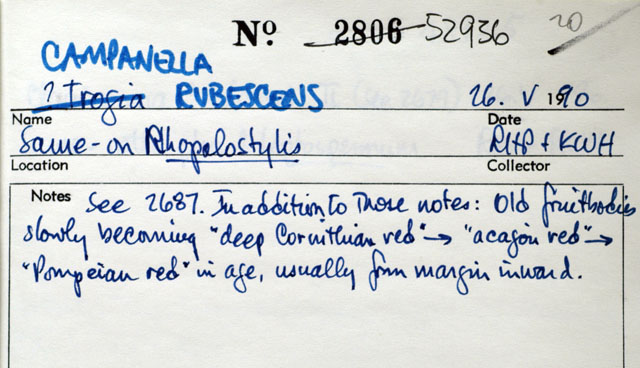 Nº 2806 52936 20
CAMPANELLA
? Trogia RUBESCENS 26. V 1990
Name Date
Same - on Rhopalostylis RHP + KWH
Location Collector
Notes See 2687. In addition to those notes: Old fruitbodies
slowly becoming "deep Corinthian red" → "acajou red" →
"Pompeian red" in age, usually from margin inward.